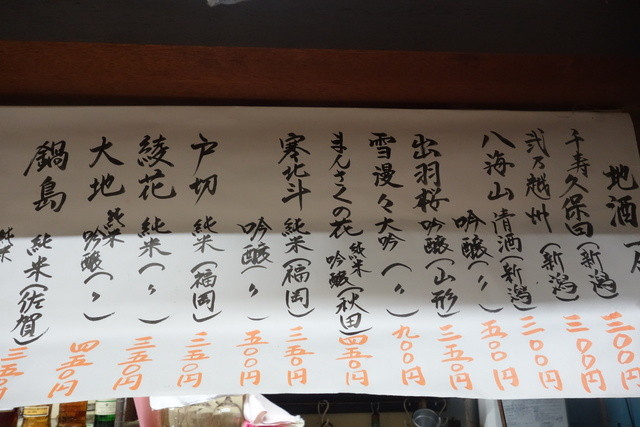 地酒
三〇〇円
千寿久保田(新潟)三〇〇円
弐乃越州(新潟)二〇〇円
八海山清酒(新潟)五〇〇円
吟醸(〃)
出羽桜吟醸(山形)二五〇円
雪漫々大吟(〃)九〇〇円
まんさくの花純米吟醸(秋田)四五〇円
寒北斗純米(福岡)二五〇円
吟醸(〃)五〇〇円
戸切純米(福岡)二五〇円
綾花純米(〃)三五〇円
大地純米吟醸(〃)四五〇円
鍋島純米(佐賀)三五〇円
純米